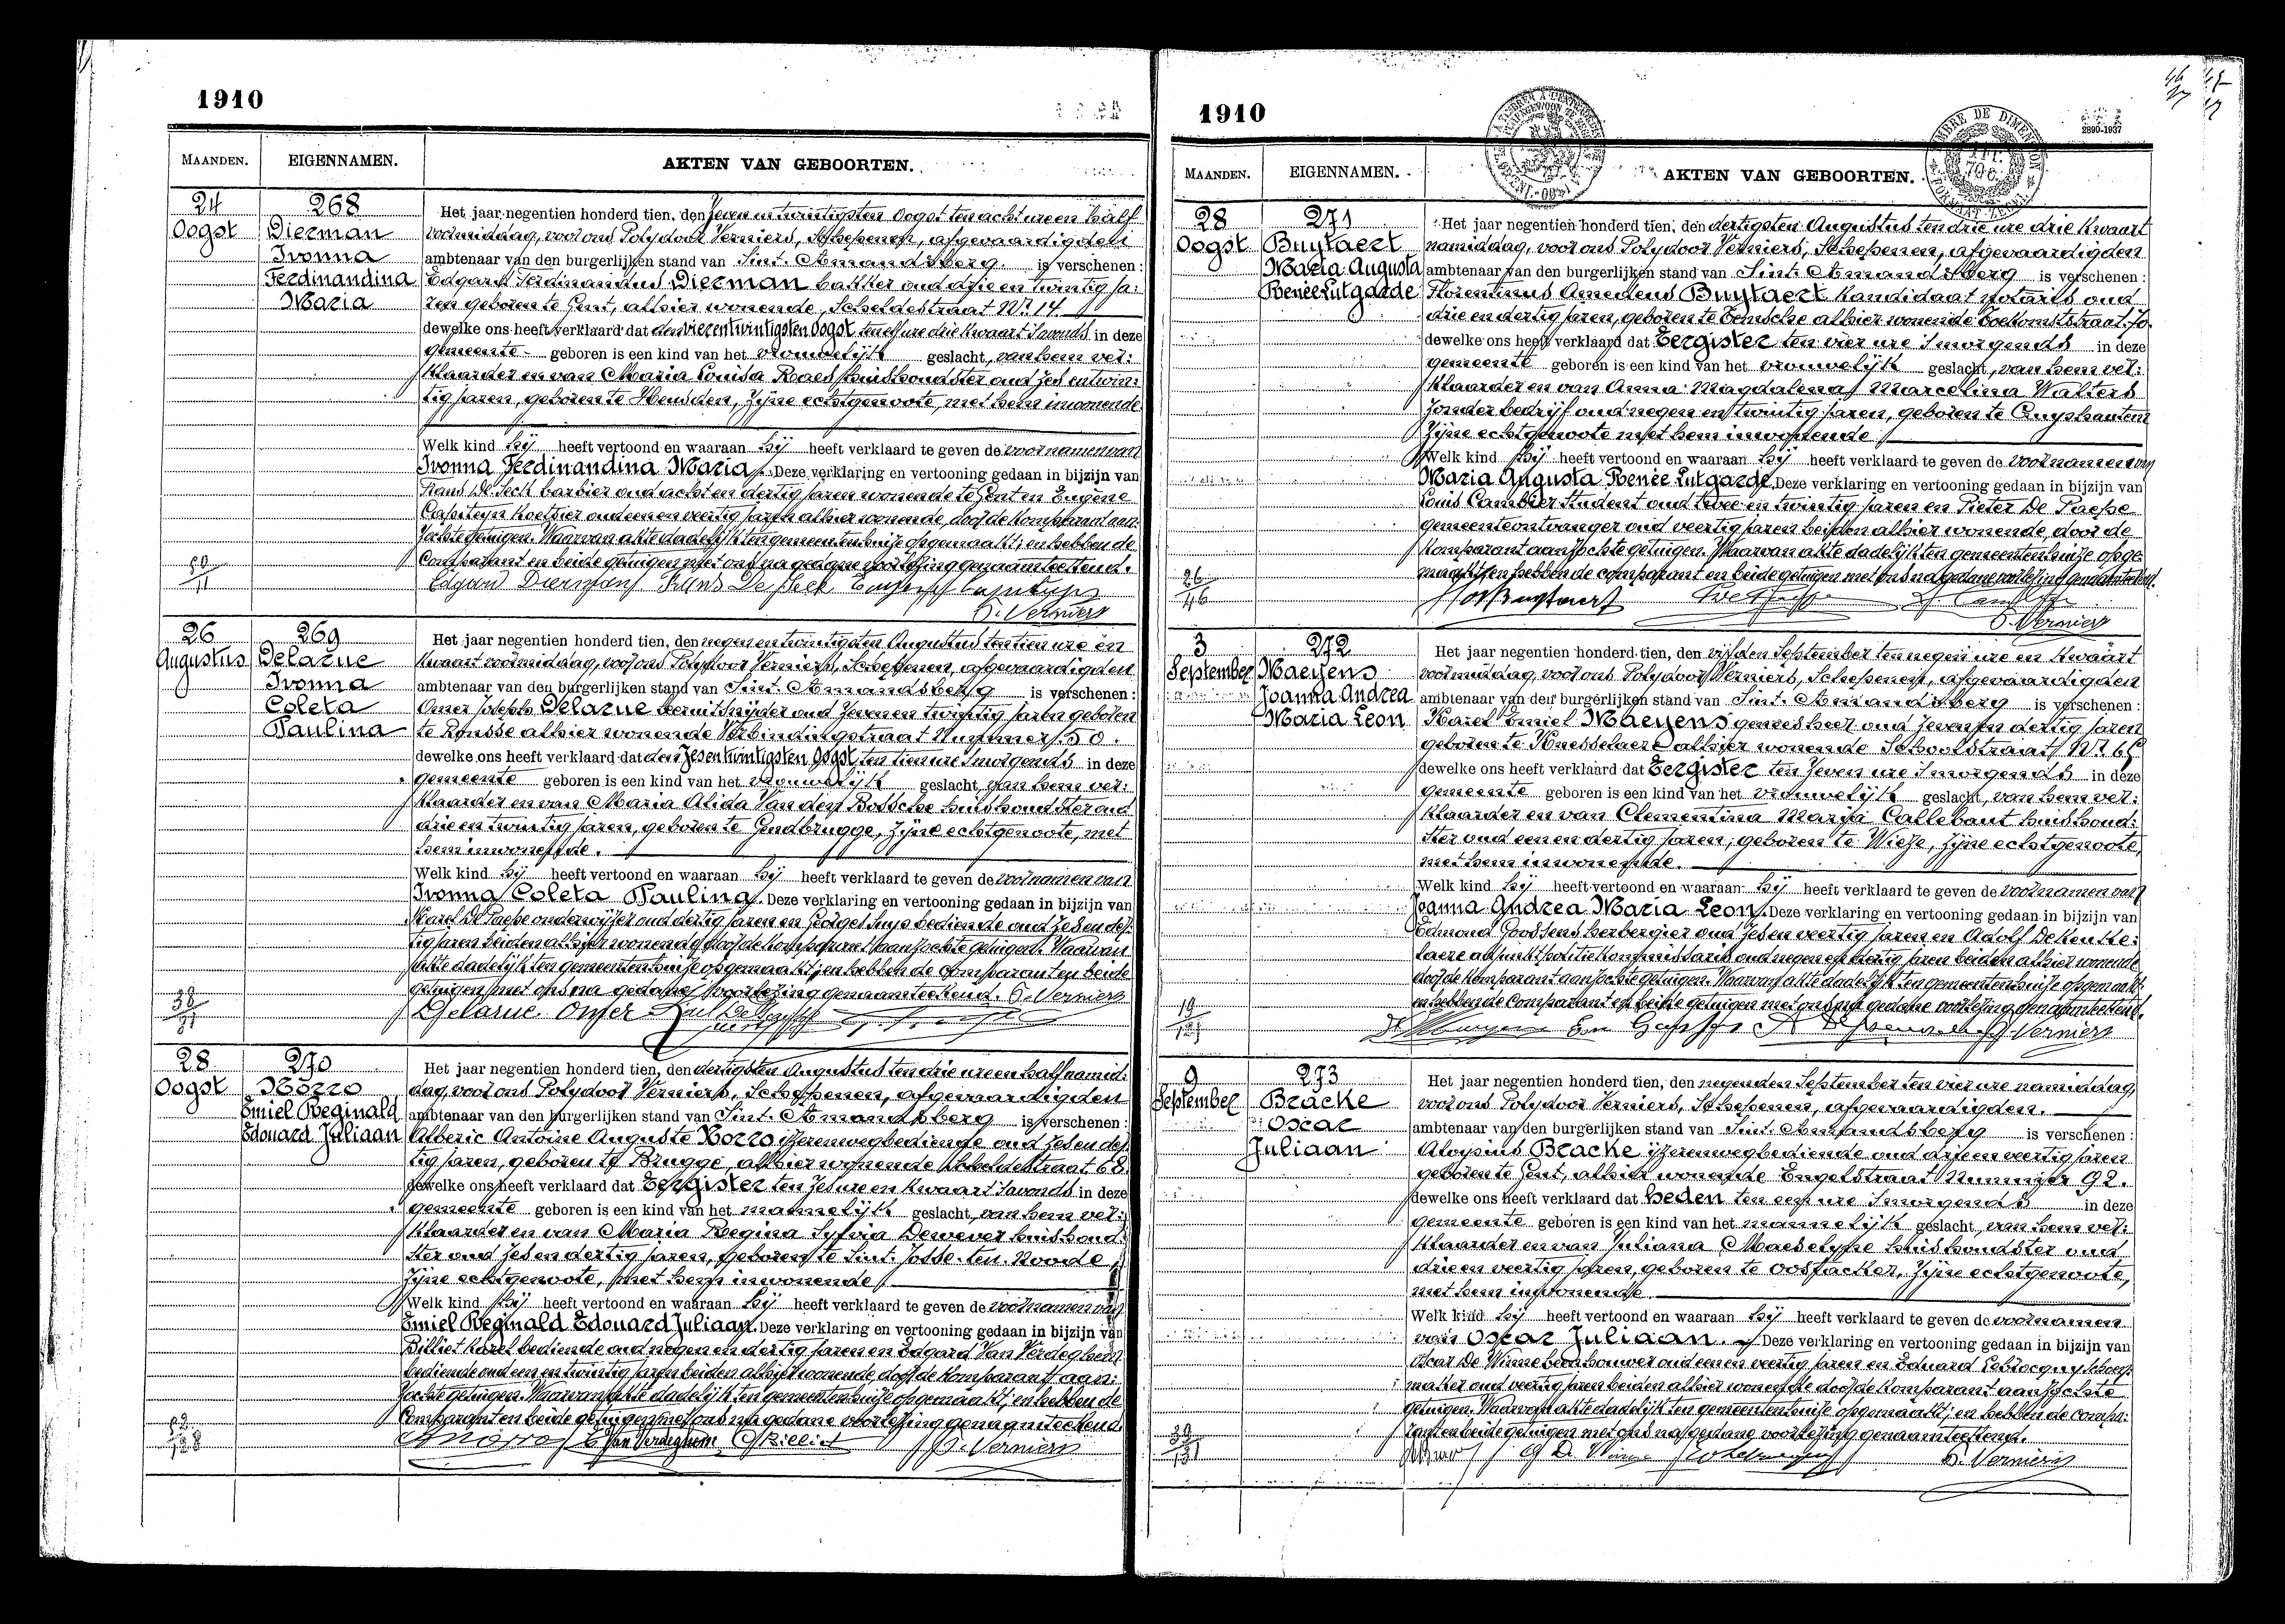 1910
MAANDEN. EIGENNAMEN. AKTEN VAN GEBOORTEN.
24 Oogst
268
Dierman
Ivonna
Ferdinandina
Maria
Het jaar negentien honderd tien, den zeven en twintigsten Oogst ten acht ure en half
voormiddag, voor ons Polydoor Verniers, Schepenen, afgevaardigden
ambtenaar van den burgerlijken stand van Sint. Amandsberg. is verschenen:
Edgard Ferdinandus Dierman bakker oud drie en twintig ja:
ren geboren te Gent, alhier wonende, Scheldestraat Nr. 14
dewelke ons heeft verklaard dat den vierentwintigsten Oogst ten elf ure drie kwaart s'avonds in deze
gemeente geboren is een kind van het vrouwelijk geslacht, van hem ver:
klaarder en van Maria Louisa Raes huishoudster oud zes en twin:
tig jaren, geboren te Heusden, zijne echtgenoote, met hem inwonende.
Welk kind hij heeft vertoond en waaraan hij heeft verklaard te geven de voornamen van
Ivonna Ferdinandina Maria. Deze verklaring en vertooning gedaan in bijzijn van
Frans De barbier oud acht en dertig jaren wonende te Gent en Eugène
Capiteyn koetsier oud een en veertig jaren alhier wonende, door de komparant aan:
zochte getuigen. Waarvan akte dadelijk ten gemeentenhuize opgemaakt; en hebben de
Comparant en beide getuigen met ons na gedane voorlezing genaamteekend.
P. Verniers
26 Augustus
269
Delarue
Ivonna
Coleta
Paulina
Het jaar negentien honderd tien, den negen en twintigsten Augustus ten tien ure en
kwaart voormiddag, voor ons Polydoor Verniers, Schepenen, afgevaardigden
ambtenaar van den burgerlijken stand van Sint. Amandsberg is verschenen:
Omer Joseph Delarue steenuitsnijder oud zeven en twintig jaren geboren
te Ronsse alhier wonende Verbindingstraat Nummer 50.
dewelke ons heeft verklaard dat den zesentwintigsten Oogst, ten tien ure s'morgends in deze
gemeente geboren is een kind van het vrouwelijk geslacht, van hem ver:
klaarder en van Maria Alida Van den Bossche huishoudster oud
drie en twintig jaren, geboren te Gendbrugge, zijne echtgenoote, met
hem inwonende.
Welk kind hij heeft vertoond en waaraan hij heeft verklaard te geven de voornamen van
Ivonna Coleta Paulina. Deze verklaring en vertooning gedaan in bijzijn van
Karel De Paepe onderwijzer oud dertig jaren en George bediende oud zes en der:
tig jaren beiden alhier wonende door de komparant aanzochte getuigen. Waarvan
akte dadelijk ten gemeentenhuize opgemaakt; en hebben de comparant en beide
getuigen met ons na gedane voorlezing genaamteekend. P. Verniers
Delarue Omer
28 Oogst
270
Nòzzo
Emiel Reginald
Edouard Juliaan
Het jaar negentien honderd tien, den dertigsten Augustus ten drie ure en half namid:
dag, voor ons Polydoor Verniers, Schepenen, afgevaardigden
ambtenaar van den burgerlijken stand van Sint. Amandsberg is verschenen:
Alberic Antoine Auguste ijzerenwegbediende oud zes en der:
tig jaren, geboren te Brugge, alhier wonende Scheldestraat 68
dewelke ons heeft verklaard dat Eergister ten zes ure en kwaart s'avonds in deze
gemeente geboren is een kind van het mannelijk geslacht, van hem ver:
klaarder en van Maria Regina Sylvia Dewever huishoud:
ster oud zes en dertig jaren, geboren te Sint. Josse. ten. Noode,
zijne echtgenoote, met hem inwonende.
Welk kind hij heeft vertoond en waaraan hij heeft verklaard te geven de voornamen van
Emiel Reginald Edouard Juliaan. Deze verklaring en vertooning gedaan in bijzijn van
Billiet Karel bediende oud negen en dertig jaren en Edgard Van Verdeghem
bediende oud een en twintig jaren beiden alhier wonende, door de komparant aan:
zochte getuigen. Waarvan akte dadelijk ten gemeentenhuize opgemaakt; en hebben de
Comparant en beide getuigen met ons na gedane voorlezing genaamteekend.
E Van Verdeghem P. Verniers
1910
2890-1937
MAANDEN. EIGENNAMEN. AKTEN VAN GEBOORTEN.
28 Oogst
271
Buytaert
Maria Augusta
Renée Lutgarde
Het jaar negentien honderd tien, den dertigsten Augustus ten drie ure drie kwaart
namiddag, voor ons Polydoor Verniers, Schepenen, afgevaardigden
ambtenaar van den burgerlijken stand van Sint. Amandsberg is verschenen:
Florentinus Amedeus Buytaert kandidaat notaris oud
drie en dertig jaren, geboren te Temsche alhier wonende Toekomststraat
dewelke ons heeft verklaard dat Eergister ten vier ure s'morgends in deze
gemeente geboren is een kind van het vrouwelijk geslacht, van hem ver:
klaarder en van Anna Magdalena Marcelina Walters
zonder bedrijf oud negen en twintig jaren, geboren te Cruyshautem
zijne echtgenoote met hem inwonende.
Welk kind hij heeft vertoond en waaraan hij heeft verklaard te geven de voornamen van
Maria Augusta Renée Lutgarde. Deze verklaring en vertooning gedaan in bijzijn van
Louis Cambier Student oud twee en twintig jaren en Pieter De Paepe
gemeenteontvanger oud veertig jaren beiden alhier wonende, door de
komparant aanzochte getuigen. Waarvan akte dadelijk ten gemeentenhuize opge:
maakt; en hebben de comparant en beide getuigen met ons na gedane voorlezing genaamteekend.
P. Verniers
3 September
272
Maeyens
Joanna Andrea
Maria Leon
Het jaar negentien honderd tien, den vijfden September ten negen ure en kwaart
voormiddag, voor ons Polydoor Verniers, Schepenen, afgevaardigden
ambtenaar van den burgerlijken stand van Sint. Amandsberg is verschenen:
Karel Emiel Maeyens geneesheer oud zeven en dertig jaren
geboren te Knesselaere alhier wonende Schoolstraat Nr.
dewelke ons heeft verklaard dat Eergister ten zeven ure s'morgends in deze
gemeente geboren is een kind van het vrouwelijk geslacht, van hem ver:
klaarder en van Clementina Maria Callebaut huishoud:
ster oud een en dertig jaren, geboren te Wieze, zijne echtgenoote,
met hem inwonende.
Welk kind hij heeft vertoond en waaraan hij heeft verklaard te geven de voornamen van
Joanna Andrea Maria Leon. Deze verklaring en vertooning gedaan in bijzijn van
Edmond Goossens herbergier oud zes en veertig jaren en Adolf De Keuke:
laere adjunktpolitiekommissaris oud negen en veertig jaren beiden alhier wonende
door de komparant aanzochte getuigen. Waarvan akte dadelijk ten gemeentenhuize opgemaakt;
en hebben de Comparant en beide getuigen met ons na gedane voorlezing genaamteekend.
P. Verniers
9 September
273
Bracke
Oscar
Juliaan
Het jaar negentien honderd tien, den negenden September ten vier ure namiddag,
voor ons Polydoor Verniers, Schepenen, afgevaardigden.
ambtenaar van den burgerlijken stand van Sint. Amandsberg is verschenen:
Aloysius Bracke ijzerenwegbediende oud drie en veertig jaren
geboren te Gent, alhier wonende Engelstraat Nummer 92.
dewelke ons heeft verklaard dat Heden ten een ure s'morgends in deze
gemeente geboren is een kind van het mannelijk geslacht, van hem ver:
klaarder en van Juliana Maeselype huishoudster oud
drie en veertig jaren, geboren te Oostacker, zijne echtgenoote,
met hem inwonende.
Welk kind hij heeft vertoond en waaraan hij heeft verklaard te geven de voornamen
van Oscar Juliaan. Deze verklaring en vertooning gedaan in bijzijn van
Oscar De Winne oud een en veertig jaren en Eduard Lebrocquy schoen:
maker oud veertig jaren beiden alhier wonende door de komparant aanzochte
getuigen. Waarvan akte dadelijk ten gemeentenhuize opgemaakt; en hebben de compa:
rant en beide getuigen met ons na gedane voorlezing genaamteekend.
P. Verniers